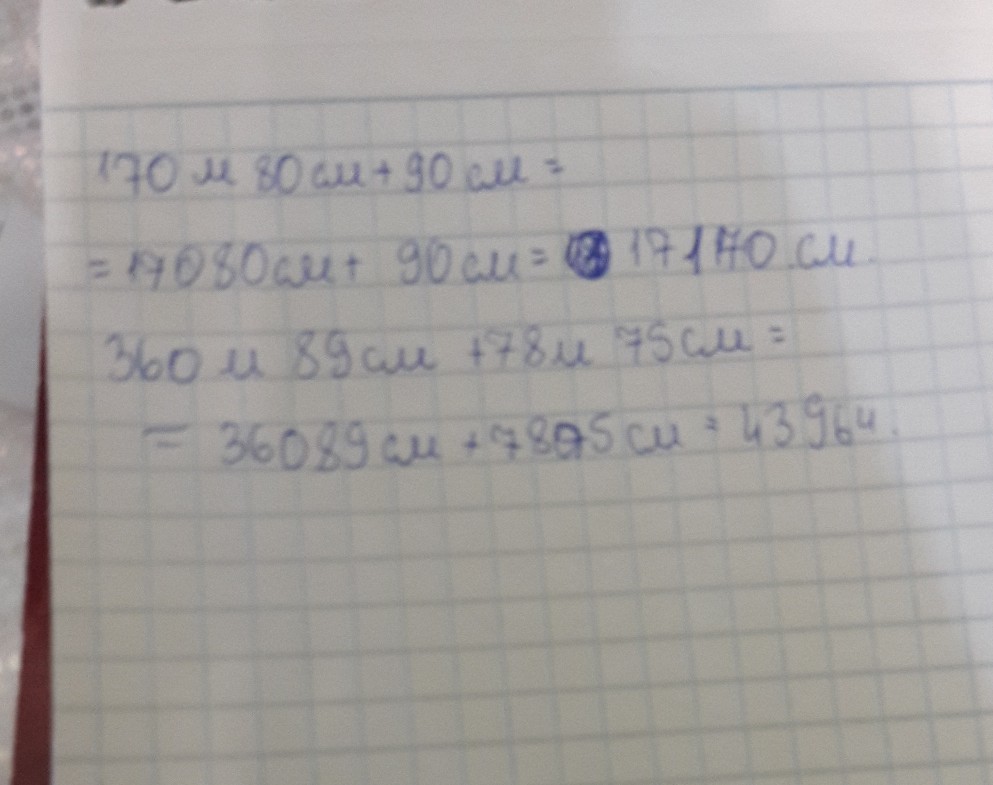 170 м 80 см + 90 см =
= 17080 см + 90 см = 17170 см.
360 м 89 см + 78 м 75 см =
= 36089 см + 7875 см = 43964.